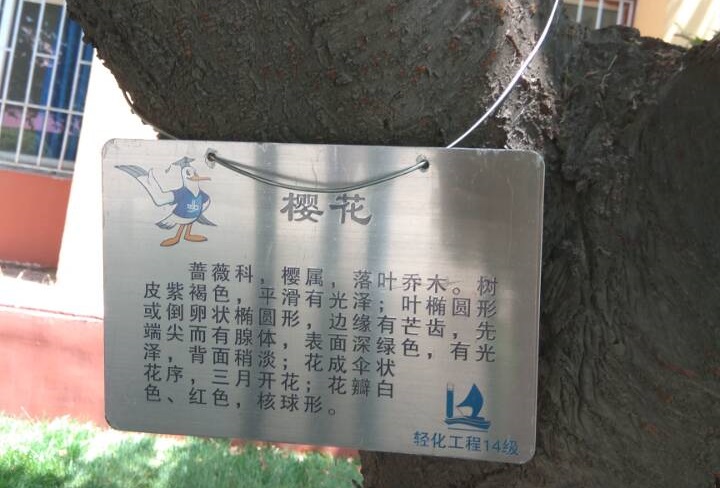 樱花
蔷薇科，樱属，落叶乔木。树
皮紫褐色，平滑有光泽；叶椭圆形
或倒卵状椭圆形，边缘有芒齿，先
端尖而有腺体，表面深绿色，有光
泽，背面稍淡；花成伞状
花序，三月开花；花瓣白
色、红色，核球形。
轻化工程14级